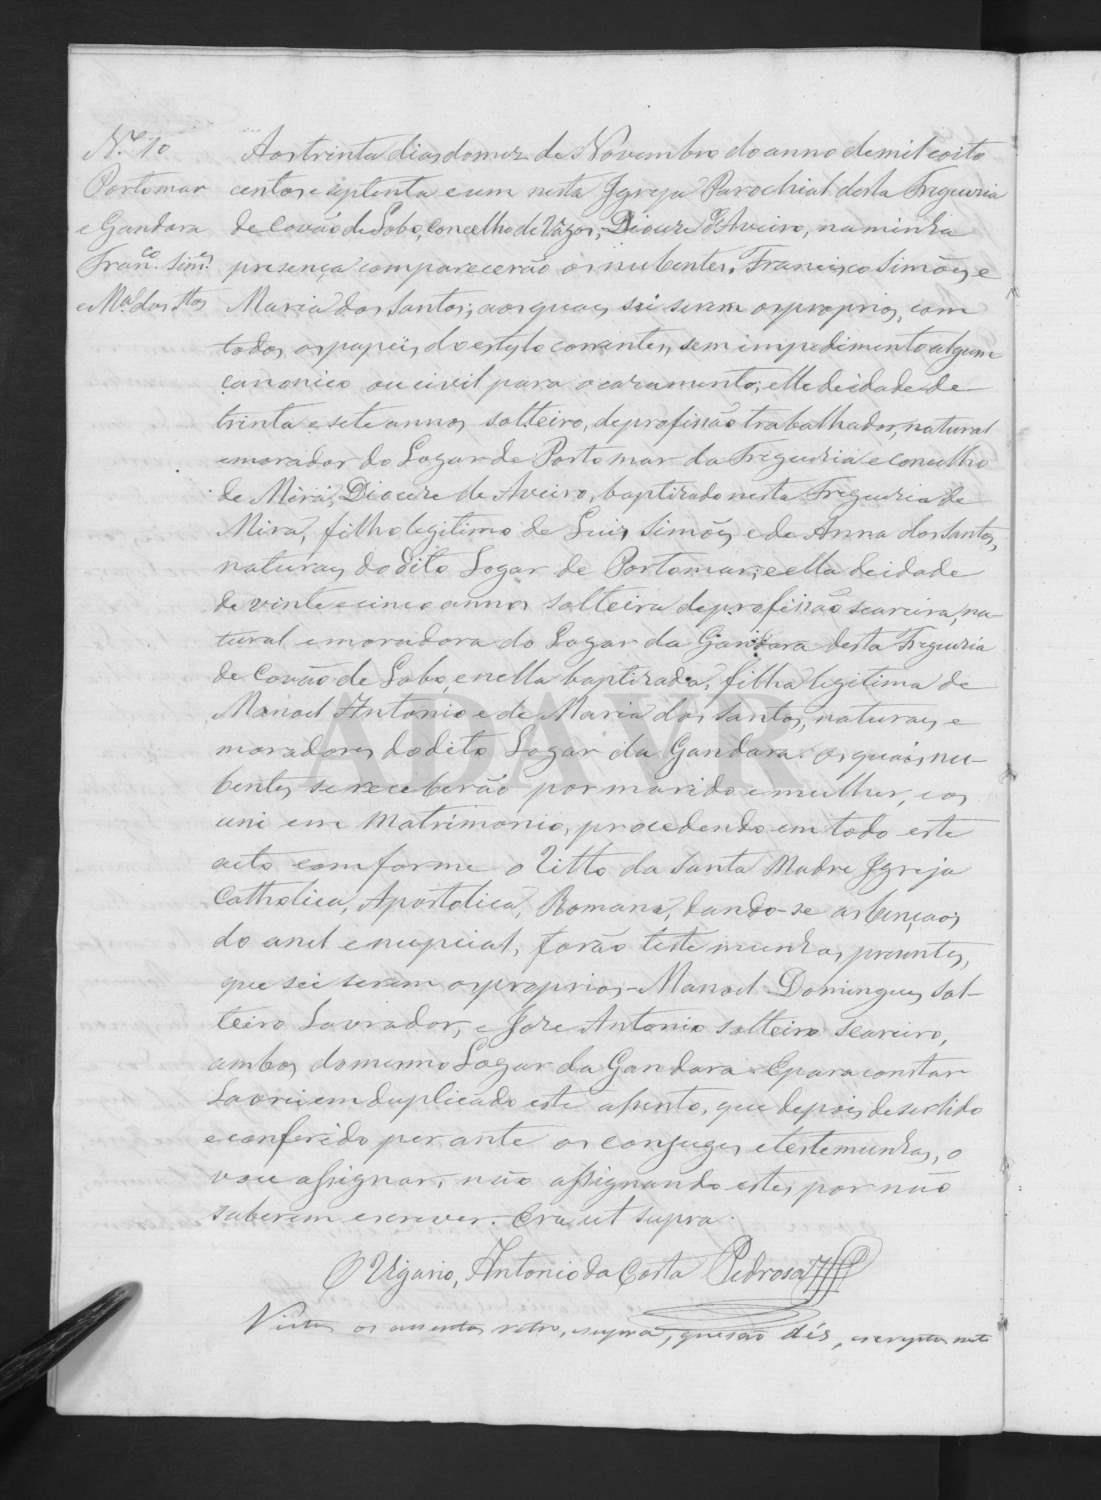 N.º 10
Portomar
e Gandara
Fran.co Sim.es
e M.a dos Stos
Aos trinta dias do mez de Novembro do anno de mil e oito
centos e septenta e um nesta Igreja Parochial desta Freguezia
de Covão de Lobo, concelho de Vagos, Dioceze d'Aveiro, na minha
presença comparecerão os nubentes, Francisco Simões, e
Maria dos Santos; aos quaes sei serem os proprios, com
todos os papeis do estylo correntes, sem impedimento algum
canonico ou civil para o casamento; elle de idade de
trinta e sete annos solteiro, de profissão trabalhador, natural
e morador do Logar de Portomar da Freguezia e concelho
de Mira, Dioceze de Aveiro, baptizado nesta Freguezia de
Mira, filho legitimo de Luis Simões e de Anna dos Santos,
naturaes do dito Logar de Portomar; e ella de idade
de vinte e cinco annos solteira de profissão seareira, na-
tural e moradora do Logar da Gandara desta Freguezia
de Covão de Lobo, e nella baptizada, filha legitima de
Manoel Antonio e de Maria dos Santos, naturaes e
moradores do dito Logar da Gandara. Os quaes nu-
bentes se receberão por marido e mulher, e os
uni em Matrimonio, procedendo em todo este
acto comforme o Ritto da Santa Madre Igreja
Catholica, Apostolica, Romana, dando-se as bençaos
do anel e nupcial, forão testemunhas presentes,
que sei serem os proprios - Manoel Domingues sol-
teiro Lavrador, e Joze Antonio solteiro seareiro,
ambos do mesmo Logar da Gandara. E para constar
Lavrei em duplicado este assento, que depois de ser lido
e conferido perante os conjuges e testemunhas, o
vou assignar, não assignando estes por não
saberem escrever. Era ut supra.
O Vigario, Antonio da Costa Pedrosa
Vistos os assentos retro, supra, que são dés, escryptos neste
ADAVR